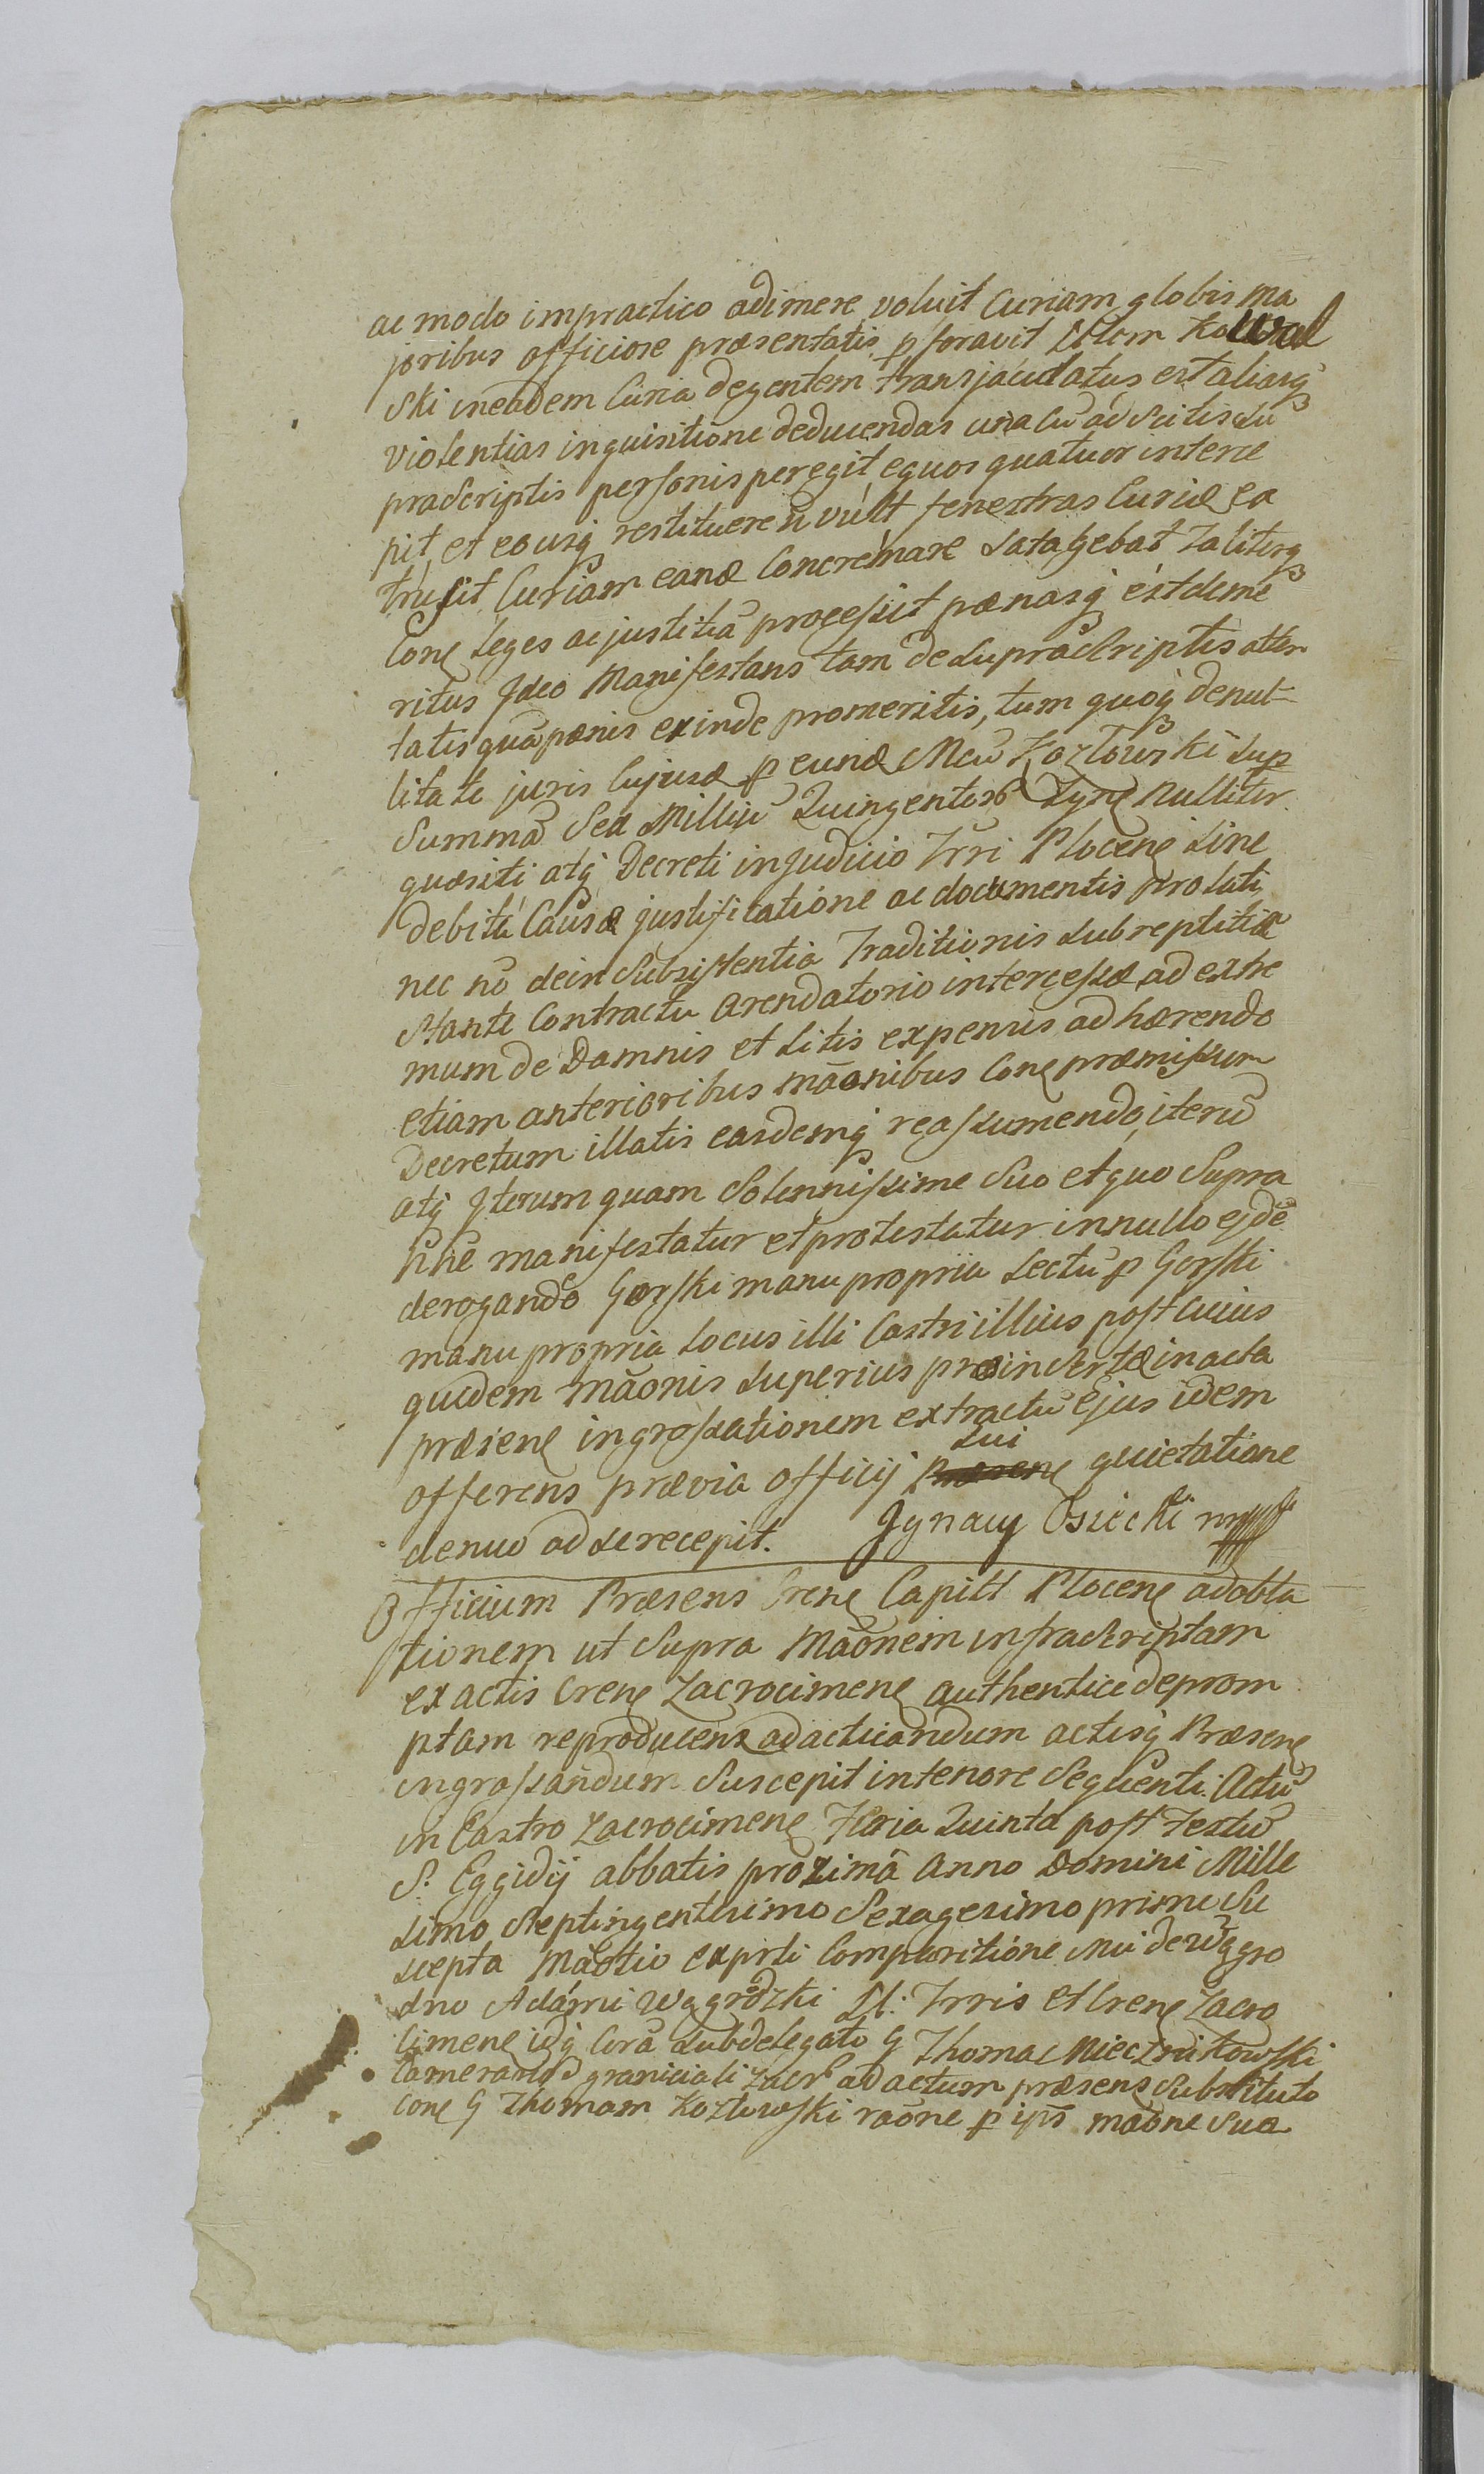 ac modo impractico adimere voluit Curiam globis ma
joribus officiose præsentatis pforavit
ski in eadem Curia degentem transjaculatus est aliasq
violentias inquisitione deducendas una cu ad scitis su
prascriptis personis peregit, equos quatuor interce
pit, et eousq restituere n vult fenestras Curiæ ex
trusit, Curiam eand Concremare satagebat taliterq
Con leges ac justitia processit pænasq est deme
ritus Ideo Manifestans tam de supra scriptis atten
tatis qua pænis exinde promeritis, tum quoq de nul
litate juris Cujusd p eund Mcu Kozłowski sup
Summa Sex Milliu Quingentor Tyn Nulliter
quæsiti atq Decreti in Judicio Trri Plocen sine
debita Causæ justificatione ac documentis prolati
nec no de in subsistentia Traditionis subreptitiæ
stante Contractu arendatorio intercessæ, ad extre
mum de Damnis et Litis expensis ad hærendo
etiam anterioribus mãonibus Con præmissum
Decretum illatis easdemq reassumendo, iteru
atq Iterum quam Solennissime Suo et quo Supra
nne manifestatur et protestatur in nullo ejde
derogando Gorski manu propria Lectu p Gorski
manu propria Locus illi Castri illius post cuius
quidem mãonis superius præinsertæ in acta
præsen ingrossationem extractu Ejus idem
offerens prævia officij sui quietatione
denuo ad se recepit. Ignacy Osiecki mpp
Officium Præsens Cren Capitl Plocen ad obla
tionem ut Supra Mãonem infrascriptam
ex actis Cren Zacrocimen authentice deprom
ptam reproducens ad acticandum actisq Præsen
ingrossandum Suscepit in tenore Sequenti. Actu
in Castro Zacrocimen Feria Quinta post Festu
S. Eggidij abbatis proxima Anno Domini Mille
simo Septingentesimo Sexagesimo primo Su
scepta Mãotio ex prti Comparitione Mci de Wągro
dno Adami Wągrodzki Trris et Cren Zacro
cimen idq Cora Subdelegato G Thoma Miecznikowski
Camerario graniciali Zacr ad actum præsens substituto
Con G Thomam Kozłowski raõne p ips mãone sua